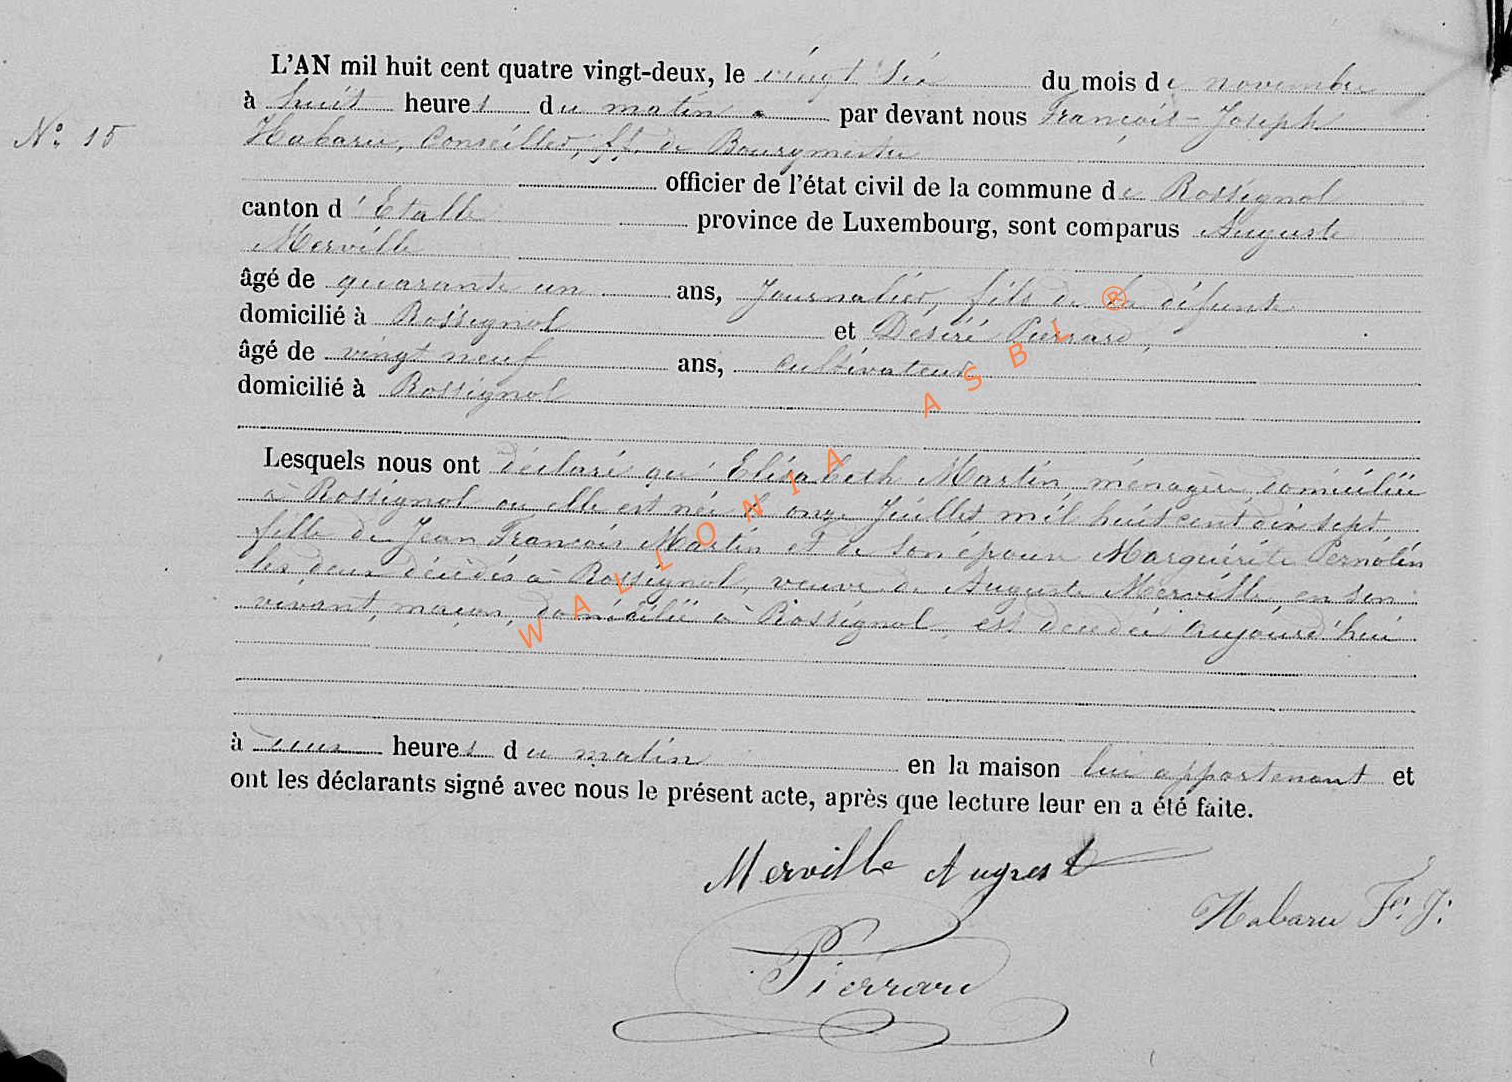 L'AN mil huit cent quatre vingt-deux, le vingt six du mois de novembre
à huit heures du matin par devant nous François-Joseph
N° 15
Habaru, Conseiller, ff. de Bourgmestre
officier de l'état civil de la commune de Rossignol
canton d'Etalle province de Luxembourg, sont comparus Auguste
Merville
âgé de quarante un ans, Journalier, fils de la défunte
domicilié à Rossignol et Désiré Pierrard,
âgé de vingt neuf ans, cultivateur
domicilié à Rossignol
Lesquels nous ont déclaré que Elisabeth Martin, ménagère, domiciliée
à Rossignol ou elle est née le onze Juillet mil huit cent dix sept
fille de Jean François Martin et de son épouse Marguérite Pernolin
les deux décédés à Rossignol, veuve de Auguste Merville, en son
vivant, maçon, domiciliée à Rossignol, est décédée aujourd'hui
à deux heures du matin en la maison lui appartenant et
ont les déclarants signé avec nous le présent acte, après que lecture leur en a été faite.
Merville August
Habaru F. J.
Pierrard
WALLONIA ASBL ®